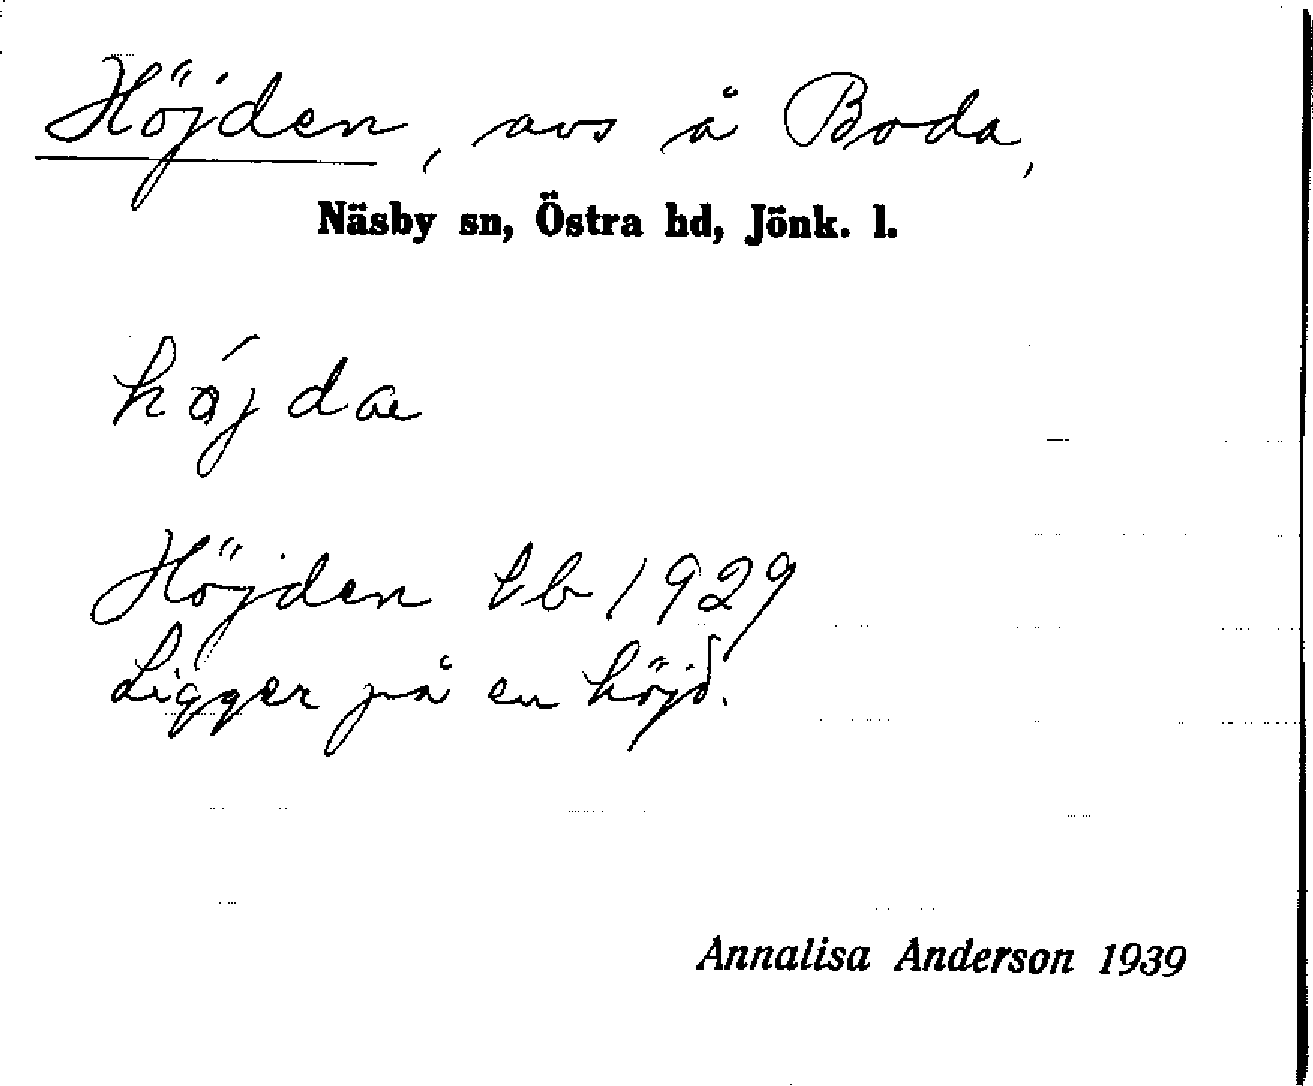 Höjden, avs å Boda,
Näsby sn, Östra hd, Jönk. l.
Höjden tb 1929
Ligger på en höjd.
Annalisa Anderson 1939